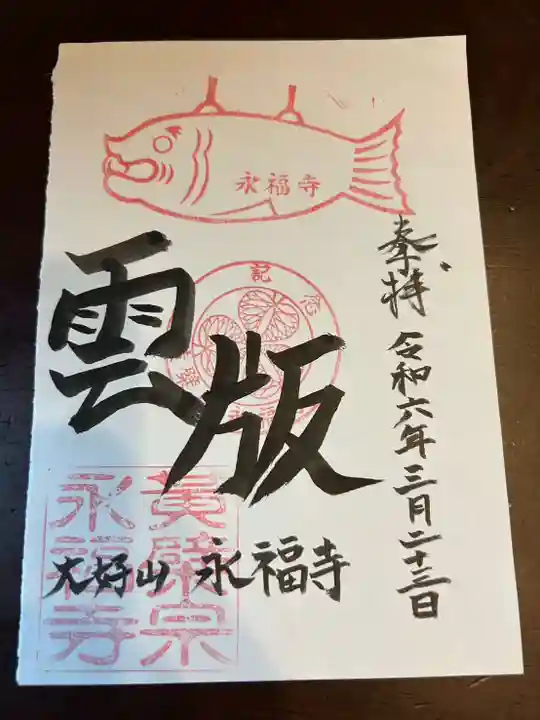 奉拝
令和六年三月二十三日
永福寺
雲版
記念
大好山 永福寺
黄檗宗
永福寺